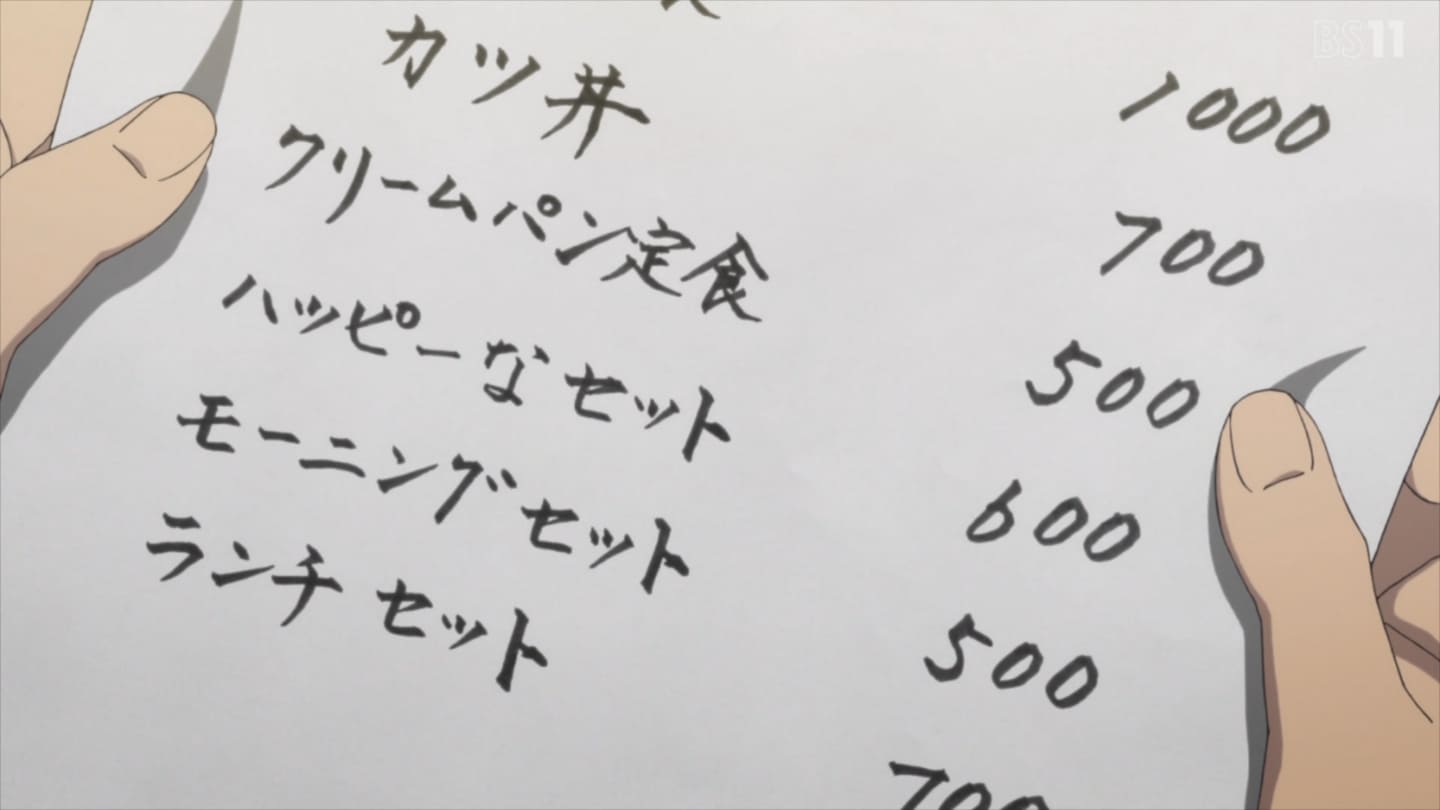 1000
カツ丼 700
クリームパン定食 500
ハッピーなセット 600
モーニングセット 500
ランチセット 700
BS11